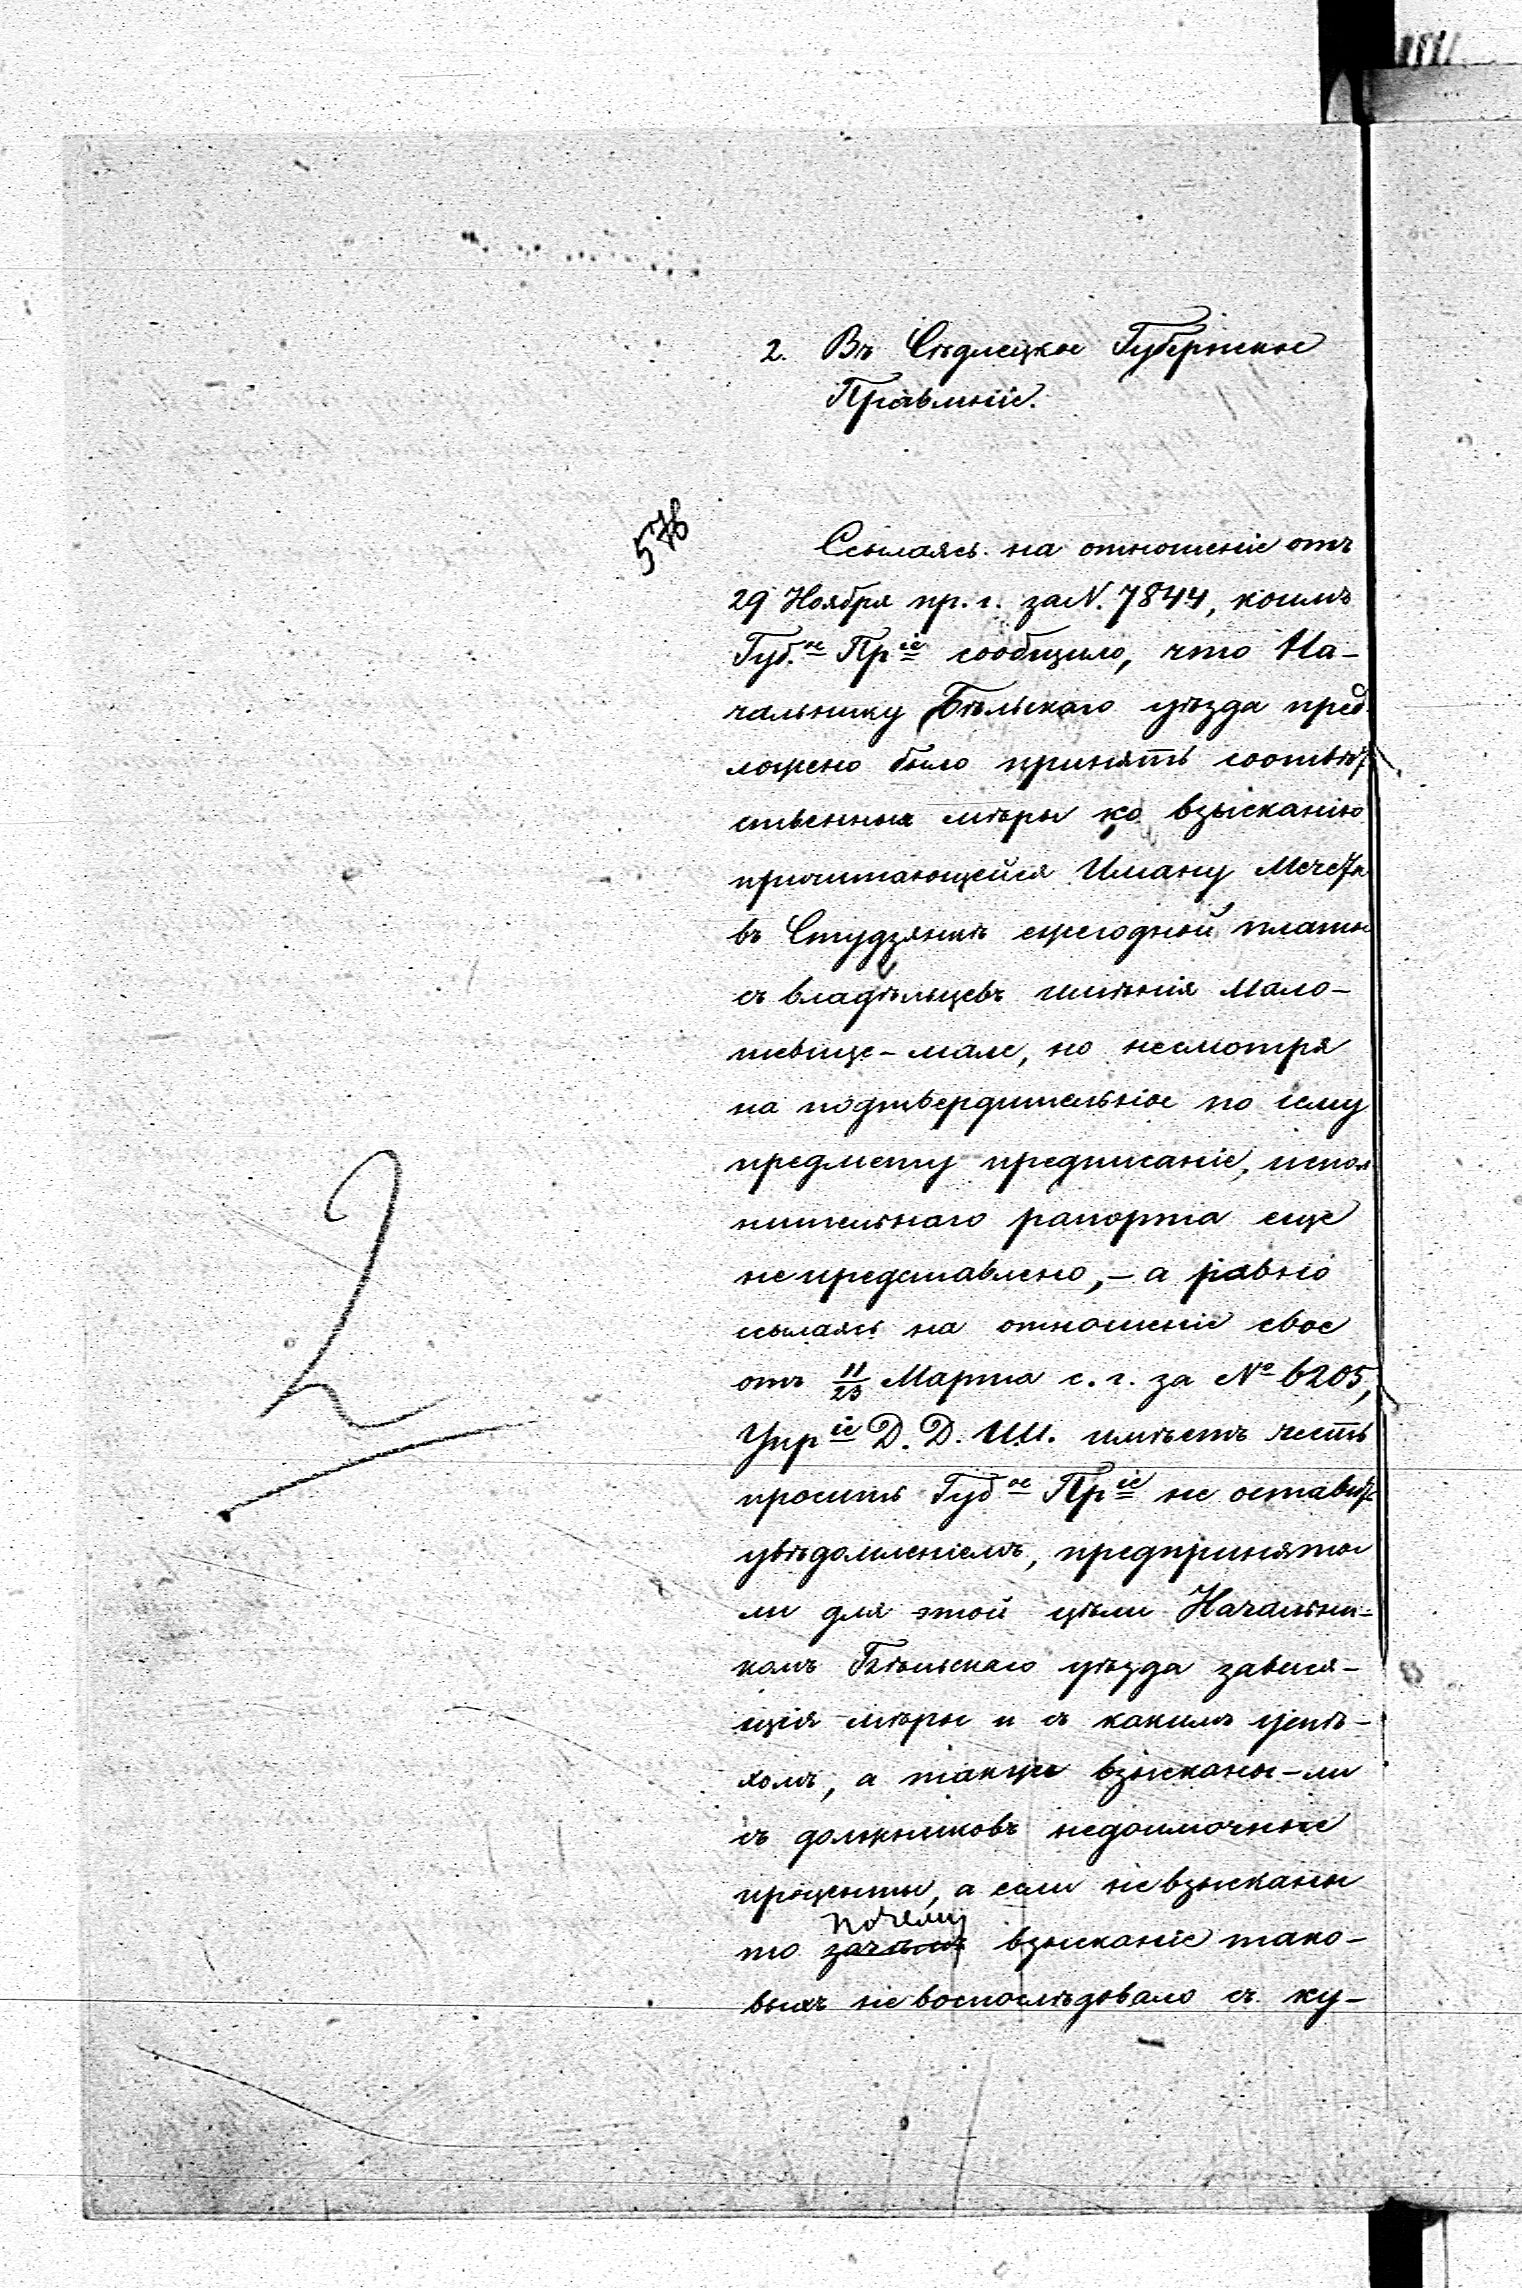 2. Въ Сѣдлецкое Губернское
Правленіе.
578
Ссылаясь на отношеніе отъ
29 Ноября пр. г. за N. 7844, коимъ
Губ.ое Пріе сообщило, что На-
чальнику Бѣльскаго уѣзда пред
ложено было принять соотвѣт
ственныя мѣры ко взысканію
причитающейся Иману Мечети
въ Студзянкѣ ежегодной платы
съ владѣльцевъ имѣнія Мало-
шевице-мале, но несмотря
на подтвердительное по сему
предмету предписаніе, испол
нительнаго рапорта еще
не представлено, - а равно
ссылаясь на отношеніе свое
отъ 11/23 Марта с. г. за № 6205,
Упріе Д. Д. И. имѣетъ честь
просить Губое Пріе не оставить
увѣдомленіемъ, предприняты
ли для этой цѣли Начальни-
комъ Бѣльскаго уѣзда завися-
щія мѣры и съ какимъ успѣ-
хомъ, а также взысканы-ли
съ должниковъ недоимочные
проценты, а если не взысканы
почему
то зачѣмъ взысканіе тако-
выхъ не воспослѣдовало съ ку-
2